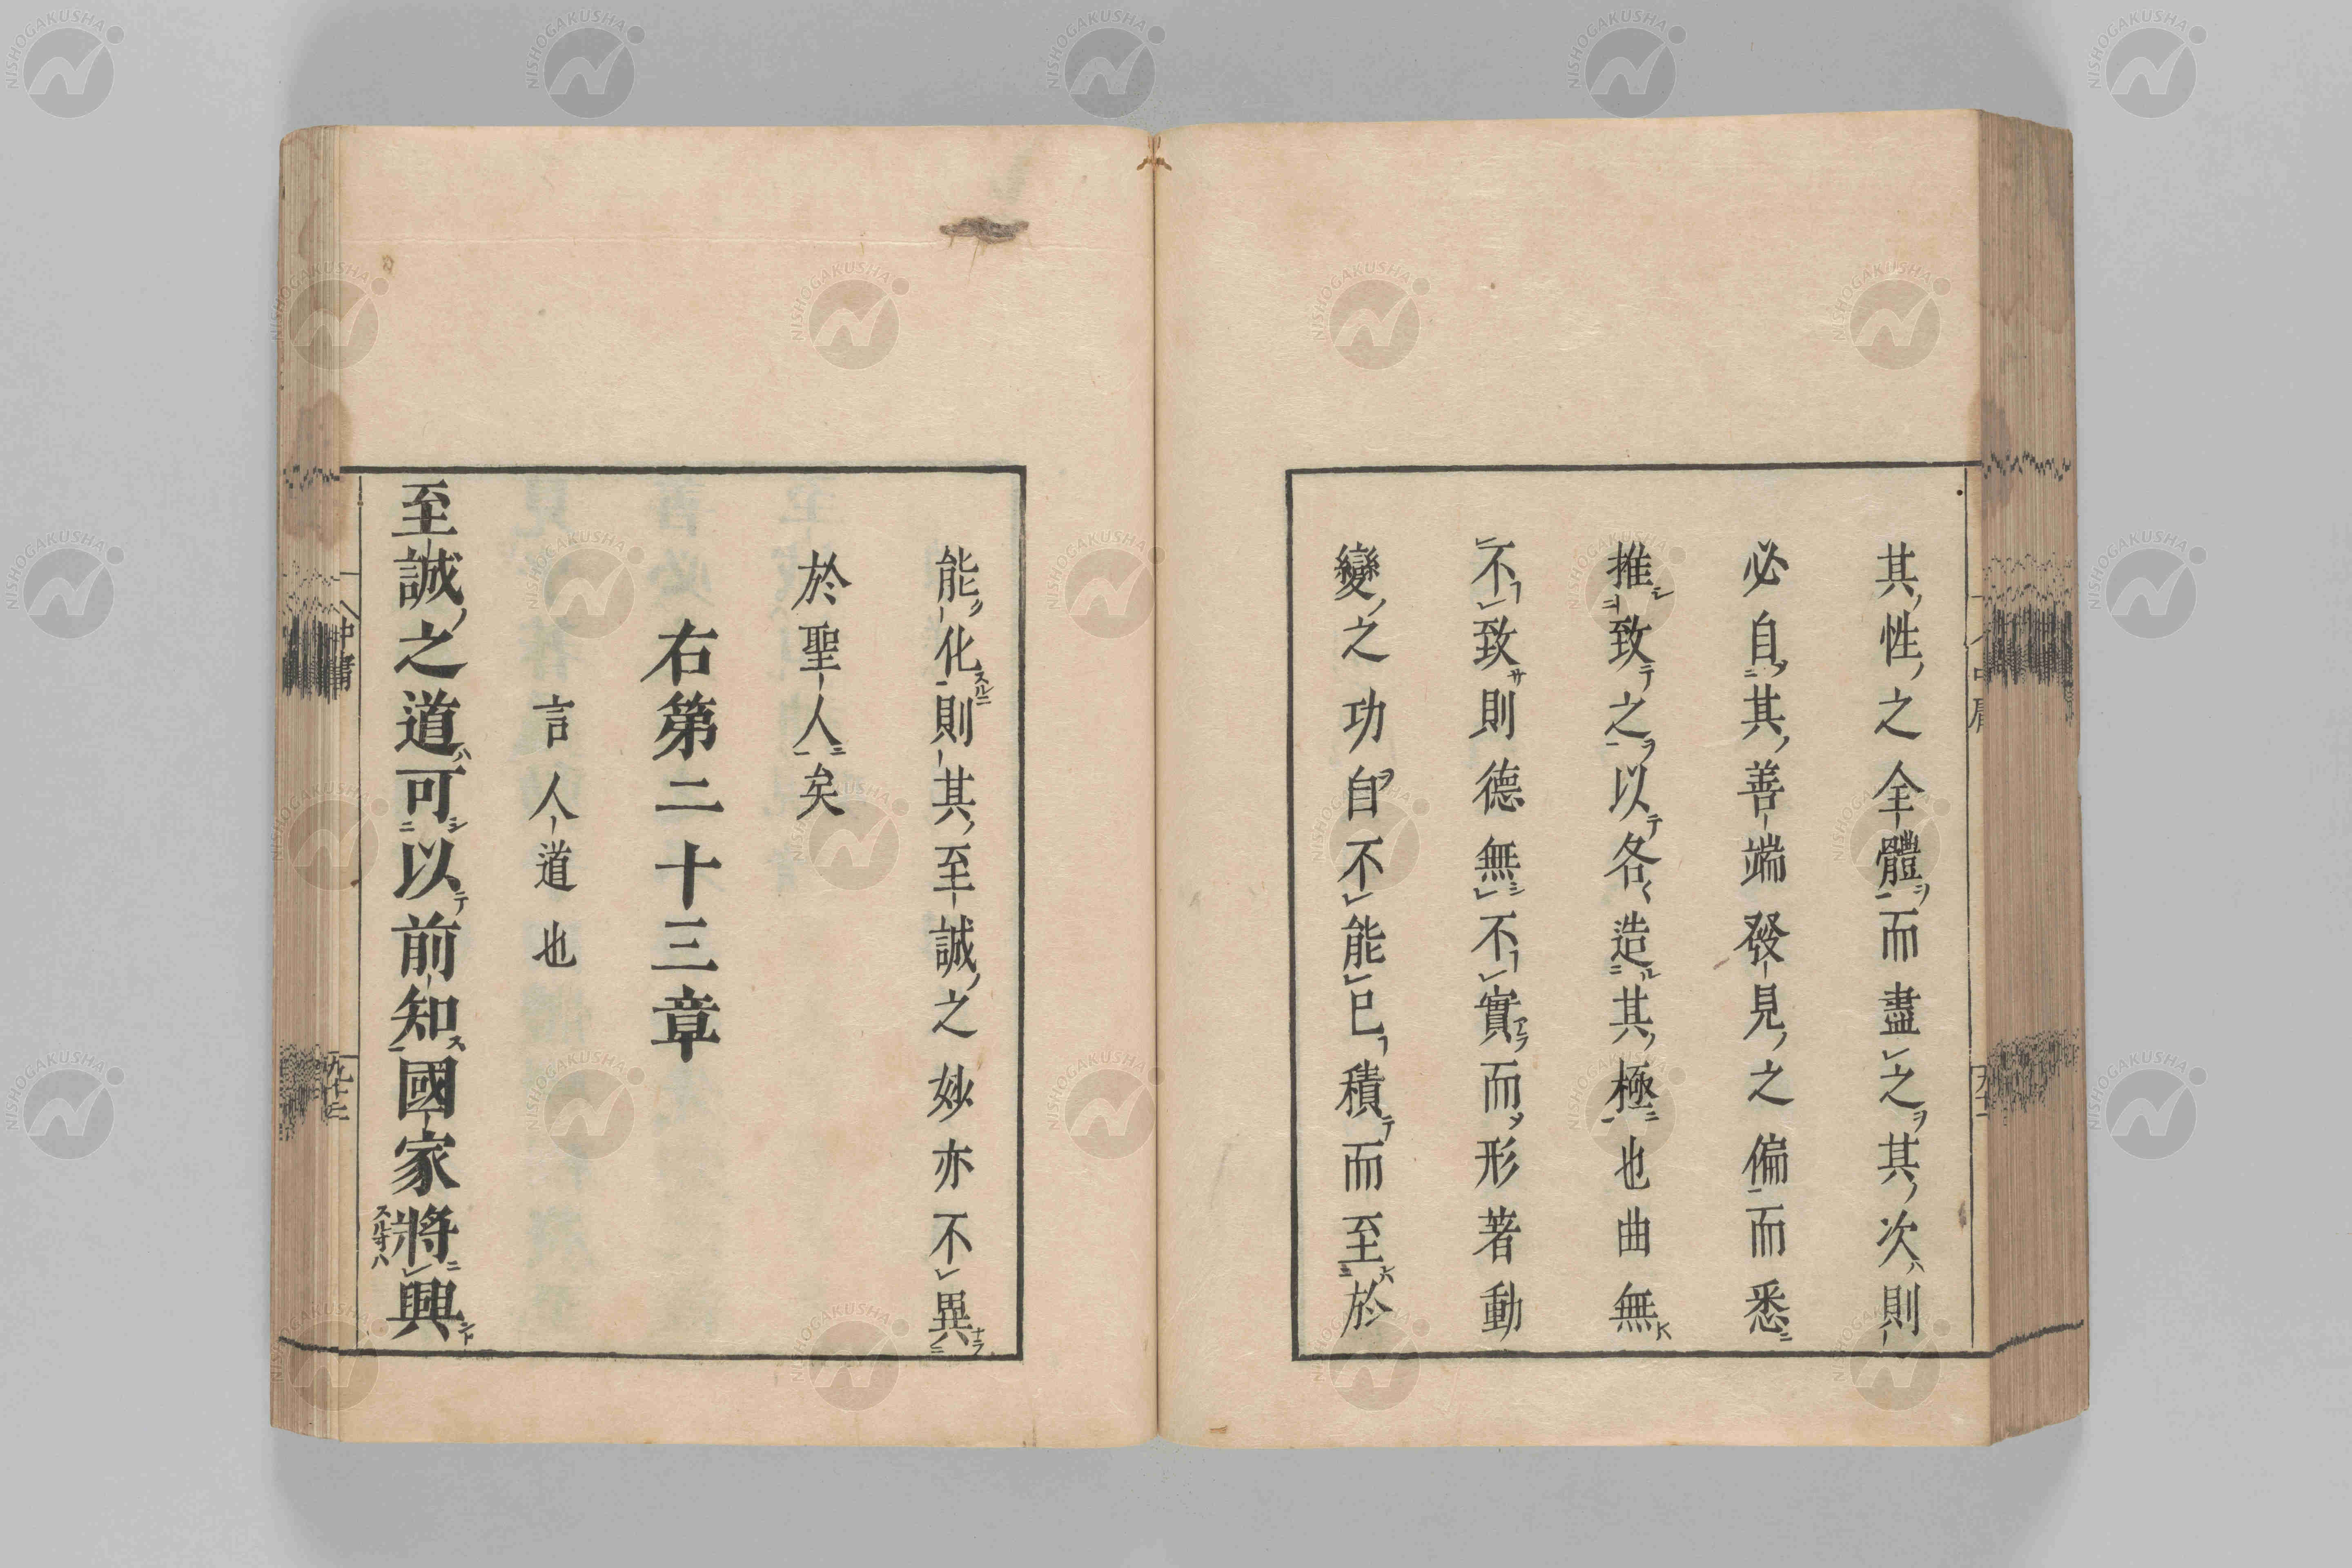 其性之全體而盡之其次則
必自其善端發見之偏而悉
推致之以各造其極也曲無
不致則德無不實而形著動
變之功自不能已積而至於
能化則其至誠之妙亦不異
於聖人矣
右第二十三章
言人道也
至誠之道可以前知國家將興
中庸
NISHOGAKUSHA